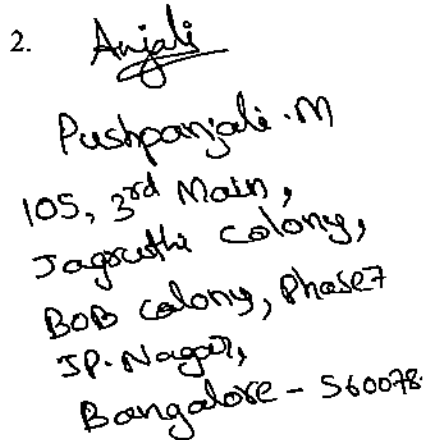 2. Anjali
Pushpanjali.M
105, 3rd Main,
Jagruthi colony,
BOB colony, Phase7
JP. Nagar,
Bangalore - 560078.